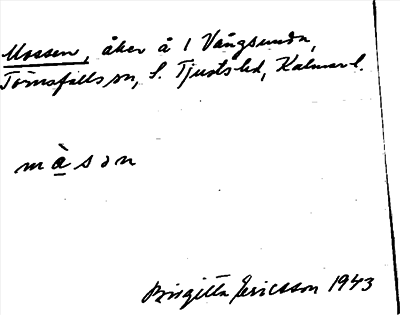 Mossen, åker å 1 Vångsunda,
Törnsfalls sn, S. Tjusts hd, Kalmar l.
må̀sən
Birgitta Ericsson 1943